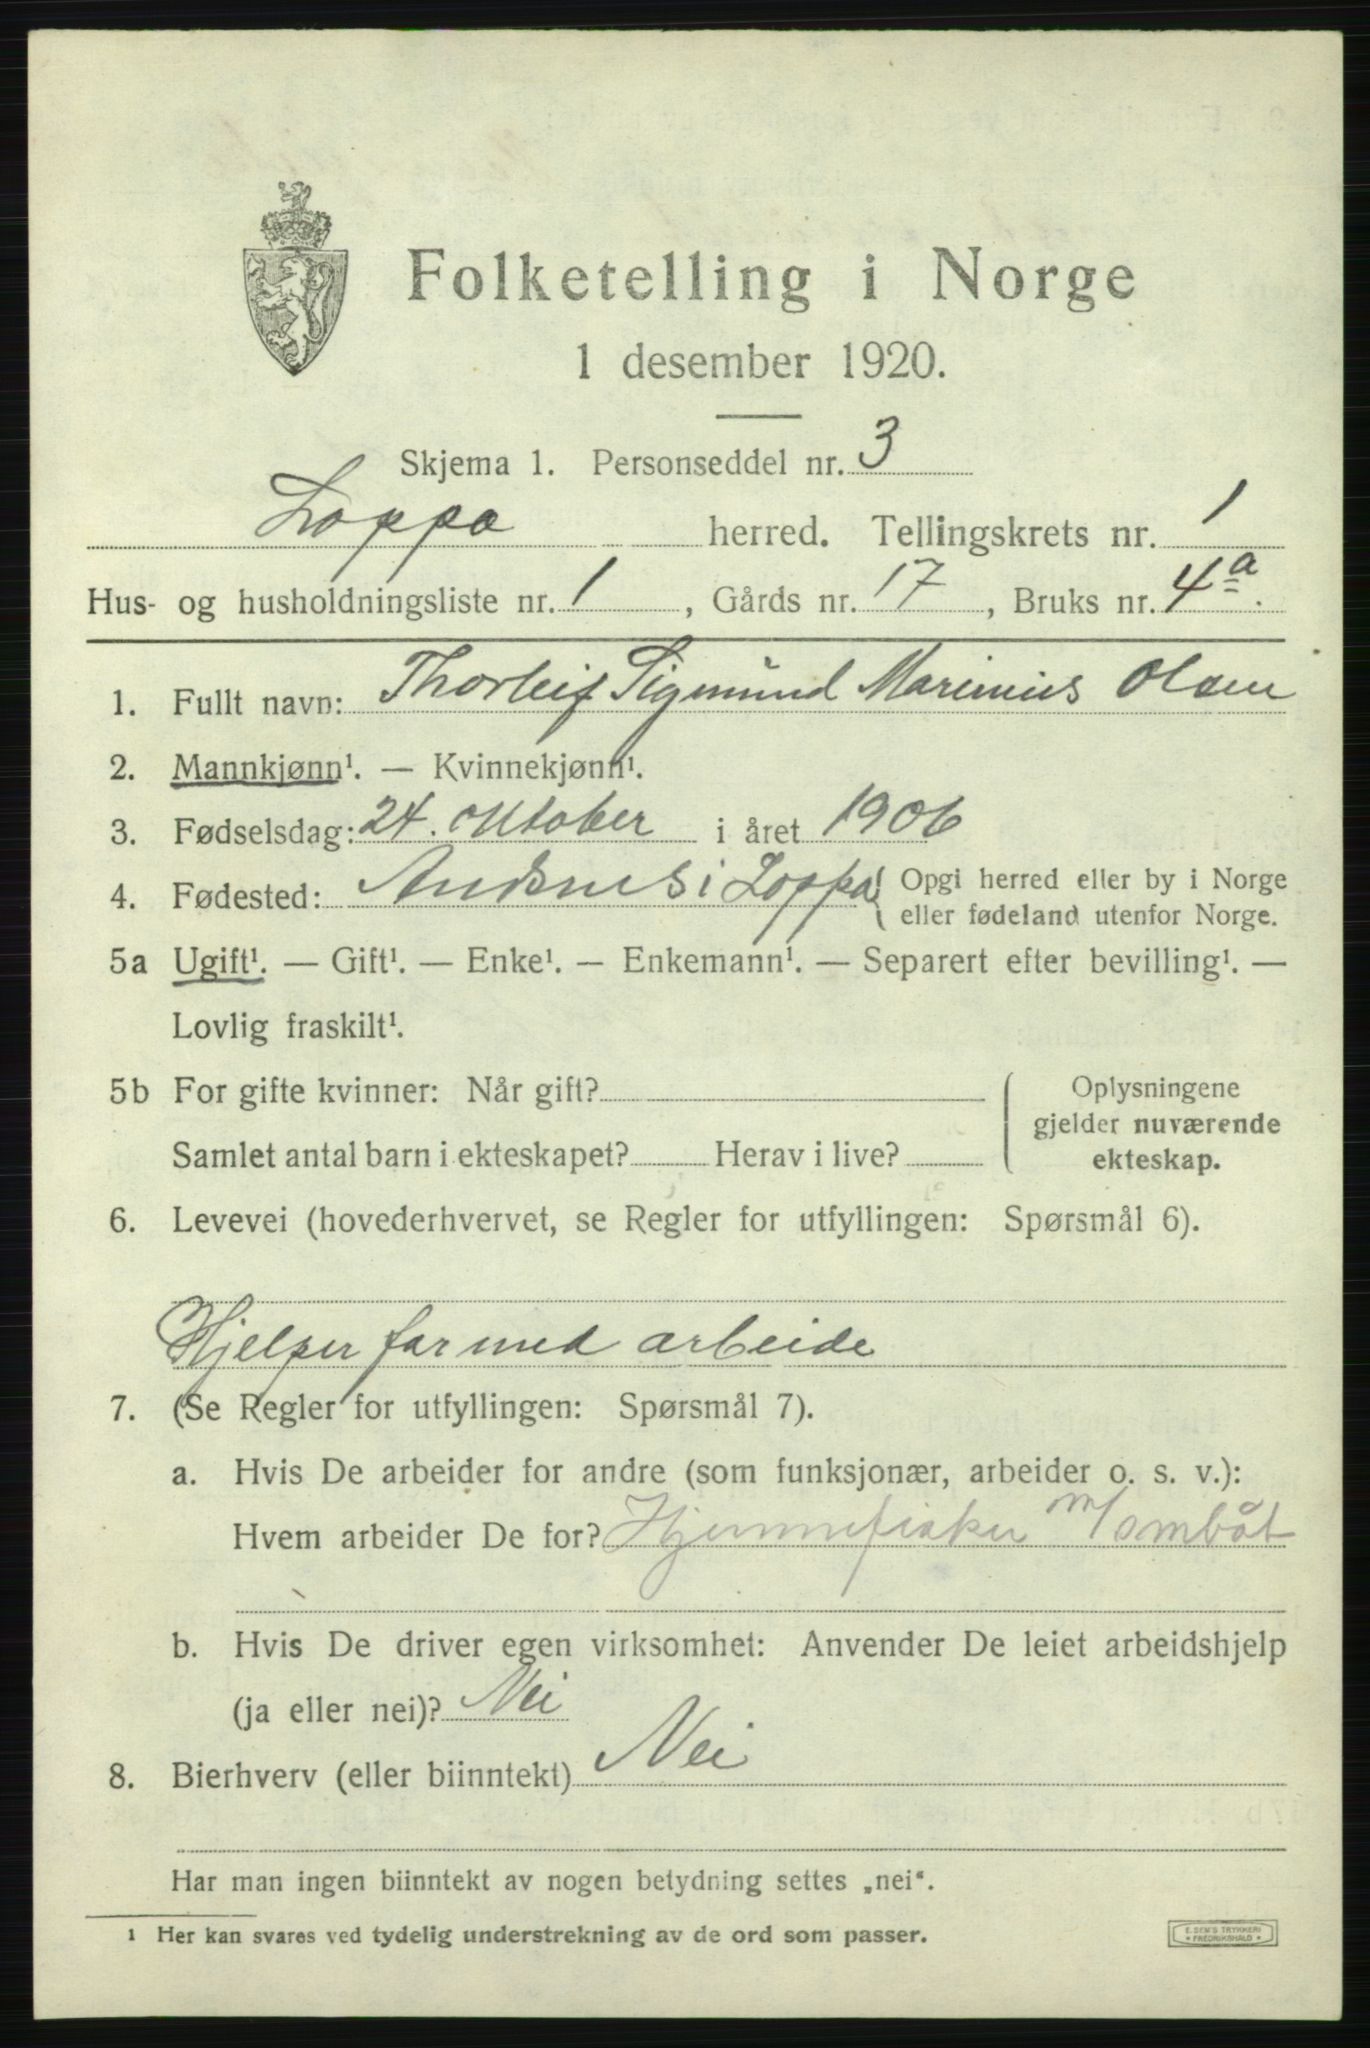 Folketelling i Norge
1 desember 1920.
Skjema 1. Personseddel nr. 3
Loppa herred. Tellingskrets nr. 1
Hus- og husholdningsliste nr. 1, Gårds nr. 17, Bruks nr. 4a.
1. Fullt navn: Thorleif Sigmund Marinius Olsen
2. Mannkjønn¹. — Kvinnekjønn¹.
3. Fødselsdag: 24. oktober i året 1906
4. Fødested: Andsnes i Loppa { Opgi herred eller by i Norge
eller fødeland utenfor Norge.
5a Ugift¹. — Gift¹. — Enke¹. — Enkemann¹. — Separert efter bevilling¹. —
Lovlig fraskilt¹.
5b For gifte kvinner: Når gift?
Samlet antal barn i ekteskapet? Herav i live?
Oplysningene
gjelder nuværende
ekteskap.
6. Levevei (hovederhvervet, se Regler for utfyllingen: Spørsmål 6).
Hjelper far med arbeide
7. (Se Regler for utfyllingen: Spørsmål 7).
a. Hvis De arbeider for andre (som funksjonær, arbeider o. s. v.):
Hvem arbeider De for? Hjemmefisker m/ småbåt
b. Hvis De driver egen virksomhet: Anvender De leiet arbeidshjelp
(ja eller nei)? Nei
8. Bierhverv (eller biinntekt) Nei
Har man ingen biinntekt av nogen betydning settes „nei“.
¹ Her kan svares ved tydelig understrekning av de ord som passer.
E. SEM'S TRYKKERI
* FREDRIKSHALD *